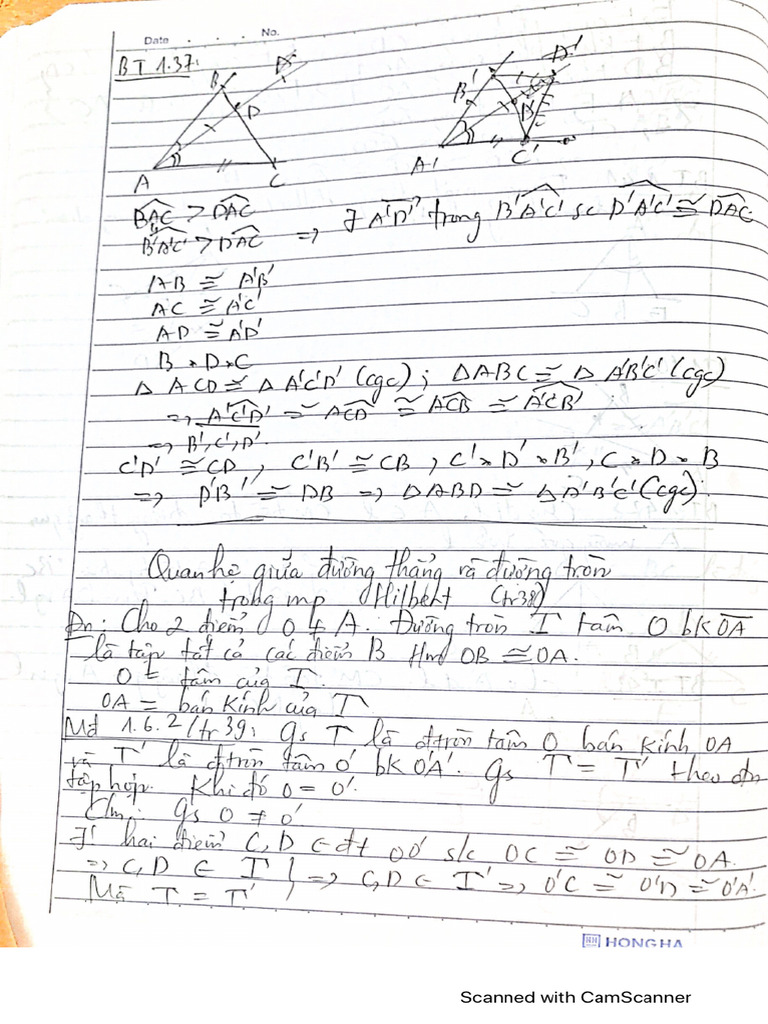 Date . . . No.
BT 1.37:
B D D'
A C
B' D' B'
A' C'
BAC > DAC
B'A'C' > DAC => ∃ A'D' trong B'A'C' sc D'A'C' ≅ DAC
AB ≅ A'B'
AC ≅ A'C'
AD ≅ A'D'
B * D * C
Δ ACD ≅ Δ A'C'D' (cgc) ; ΔABC ≅ Δ A'B'C' (cgc)
=> A'C'D' ≅ ACD ≅ ACB ≅ A'C'B'
=> B', C', D'.
C'D' ≅ CD , C'B' ≅ CB , C' * D' * B' , C * D * B
=> D'B' ≅ DB => ΔABD ≅ Δ A'B'C' (cgc).
Quan hệ giữa đường thẳng và đường tròn
trong mp Hilbert (tr38)
Đn: Cho 2 điểm O ≠ A. Đường tròn T tâm O bk OA
là tập tất cả các điểm B OB ≅ OA.
O = tâm của T.
OA = bán kính của T
Mđ 1.6.2/tr39: Gs T là đtròn tâm O bán kính OA
và T' là đtròn tâm O' bk O'A'. Gs T = T' theo đn
tập hợp. Khi đó O = O'.
Cm: Gs O ≠ O'
∃! hai điểm C, D ∈ đt OO' s/c OC ≅ OD ≅ OA.
=> C, D ∈ T } => C, D ∈ T' => O'C ≅ O'D ≅ O'A'.
Mà T = T'
HH HONG HA
Scanned with CamScanner